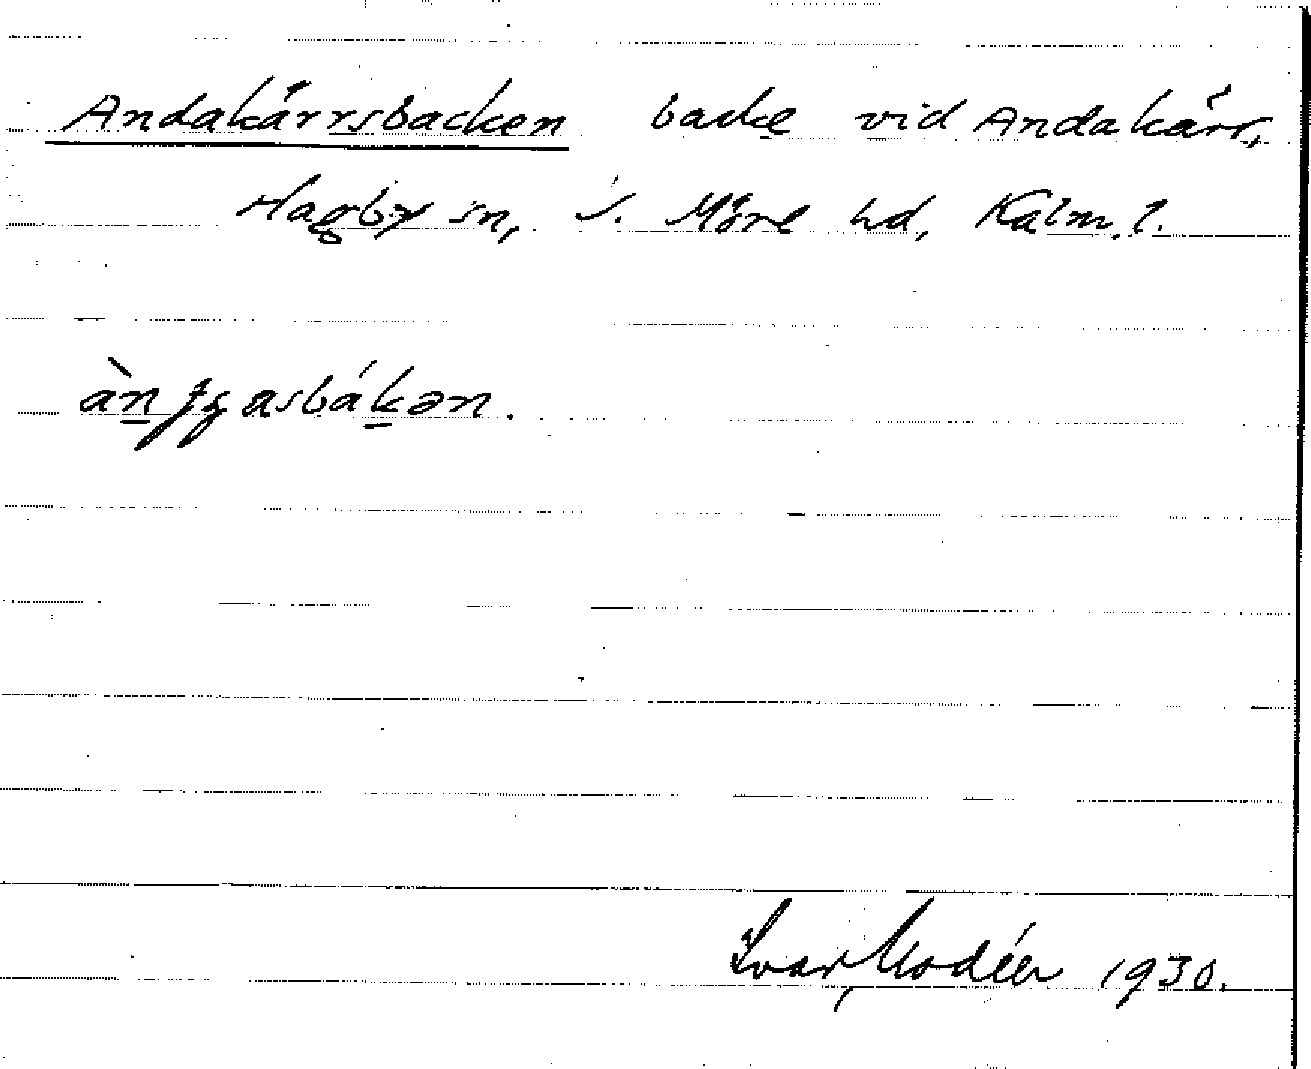 Andakärrsbacken backe vid Andakärr,
Hagby sn, S. Möre hd, Kalm. l.
Ivar Modéer 1930.